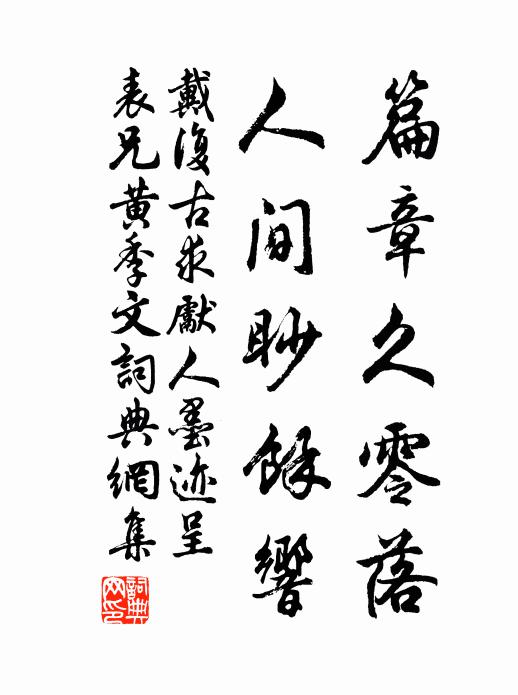 篇章久零落
人間眇餘響
戴復古求獻人墨迹呈
表兄黃季文詞典網集
詞典网印